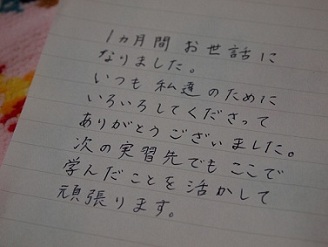 1ヵ月間 お世話に
なりました。
いつも 私達 のために
いろいろしてくださって
ありがとうございました。
次の実習先でも ここで
学んだことを 活かして
頑張ります。